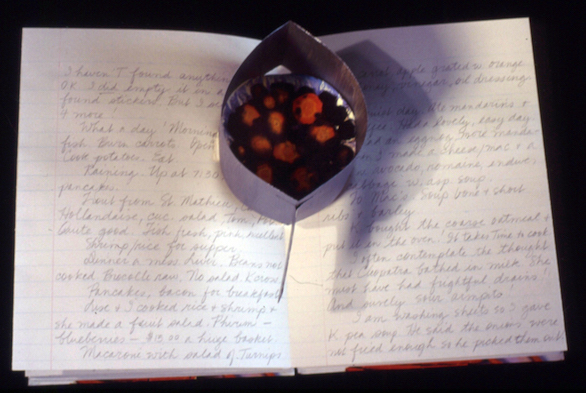 I haven't found anything
OK. I did empty it on a
found stickers. But I
& more!
What a day! Morning
fish. Bwra carrots.
Cook potatoes. Eat.
Raining. Up at 7:30
pancakes.
Fruit from St. Mathieu.
Hollandaise, cuc. salad Tom,
Quite good. Fish fresh, pink,
Shrimp/rice for supper.
Dinner a mess liver. Beans not
cooked. Broccolle raw. No salad.
Pancakes, bacon for breakfast
Rose & I cooked rice & shrimp &
she made a fruit salad. Phewm -
blueberries - $15.00 a huge basket.
Macaroni with salad of Turnips
carrot, apple grated w. orange
vinegar, oil dressing.
day. Ate mandarins &
rice. Had a lovely, easy day.
eggnog, more
I made a cheese/mac & a
avocado, romaine, endive
cabbage w. asp. soup.
Mac as soup bone & short
ribs & barley.
K bought the coarse oatmeal &
put it in the oven! It takes time to cook.
I often contemplate the thought
that Cleopatra bathed in milk. She
must have had frightful drains!
And surely sour armpits!
I am washing sheets so I gave
K. pea soup. He said the onions were
not fried enough so he picked them out.